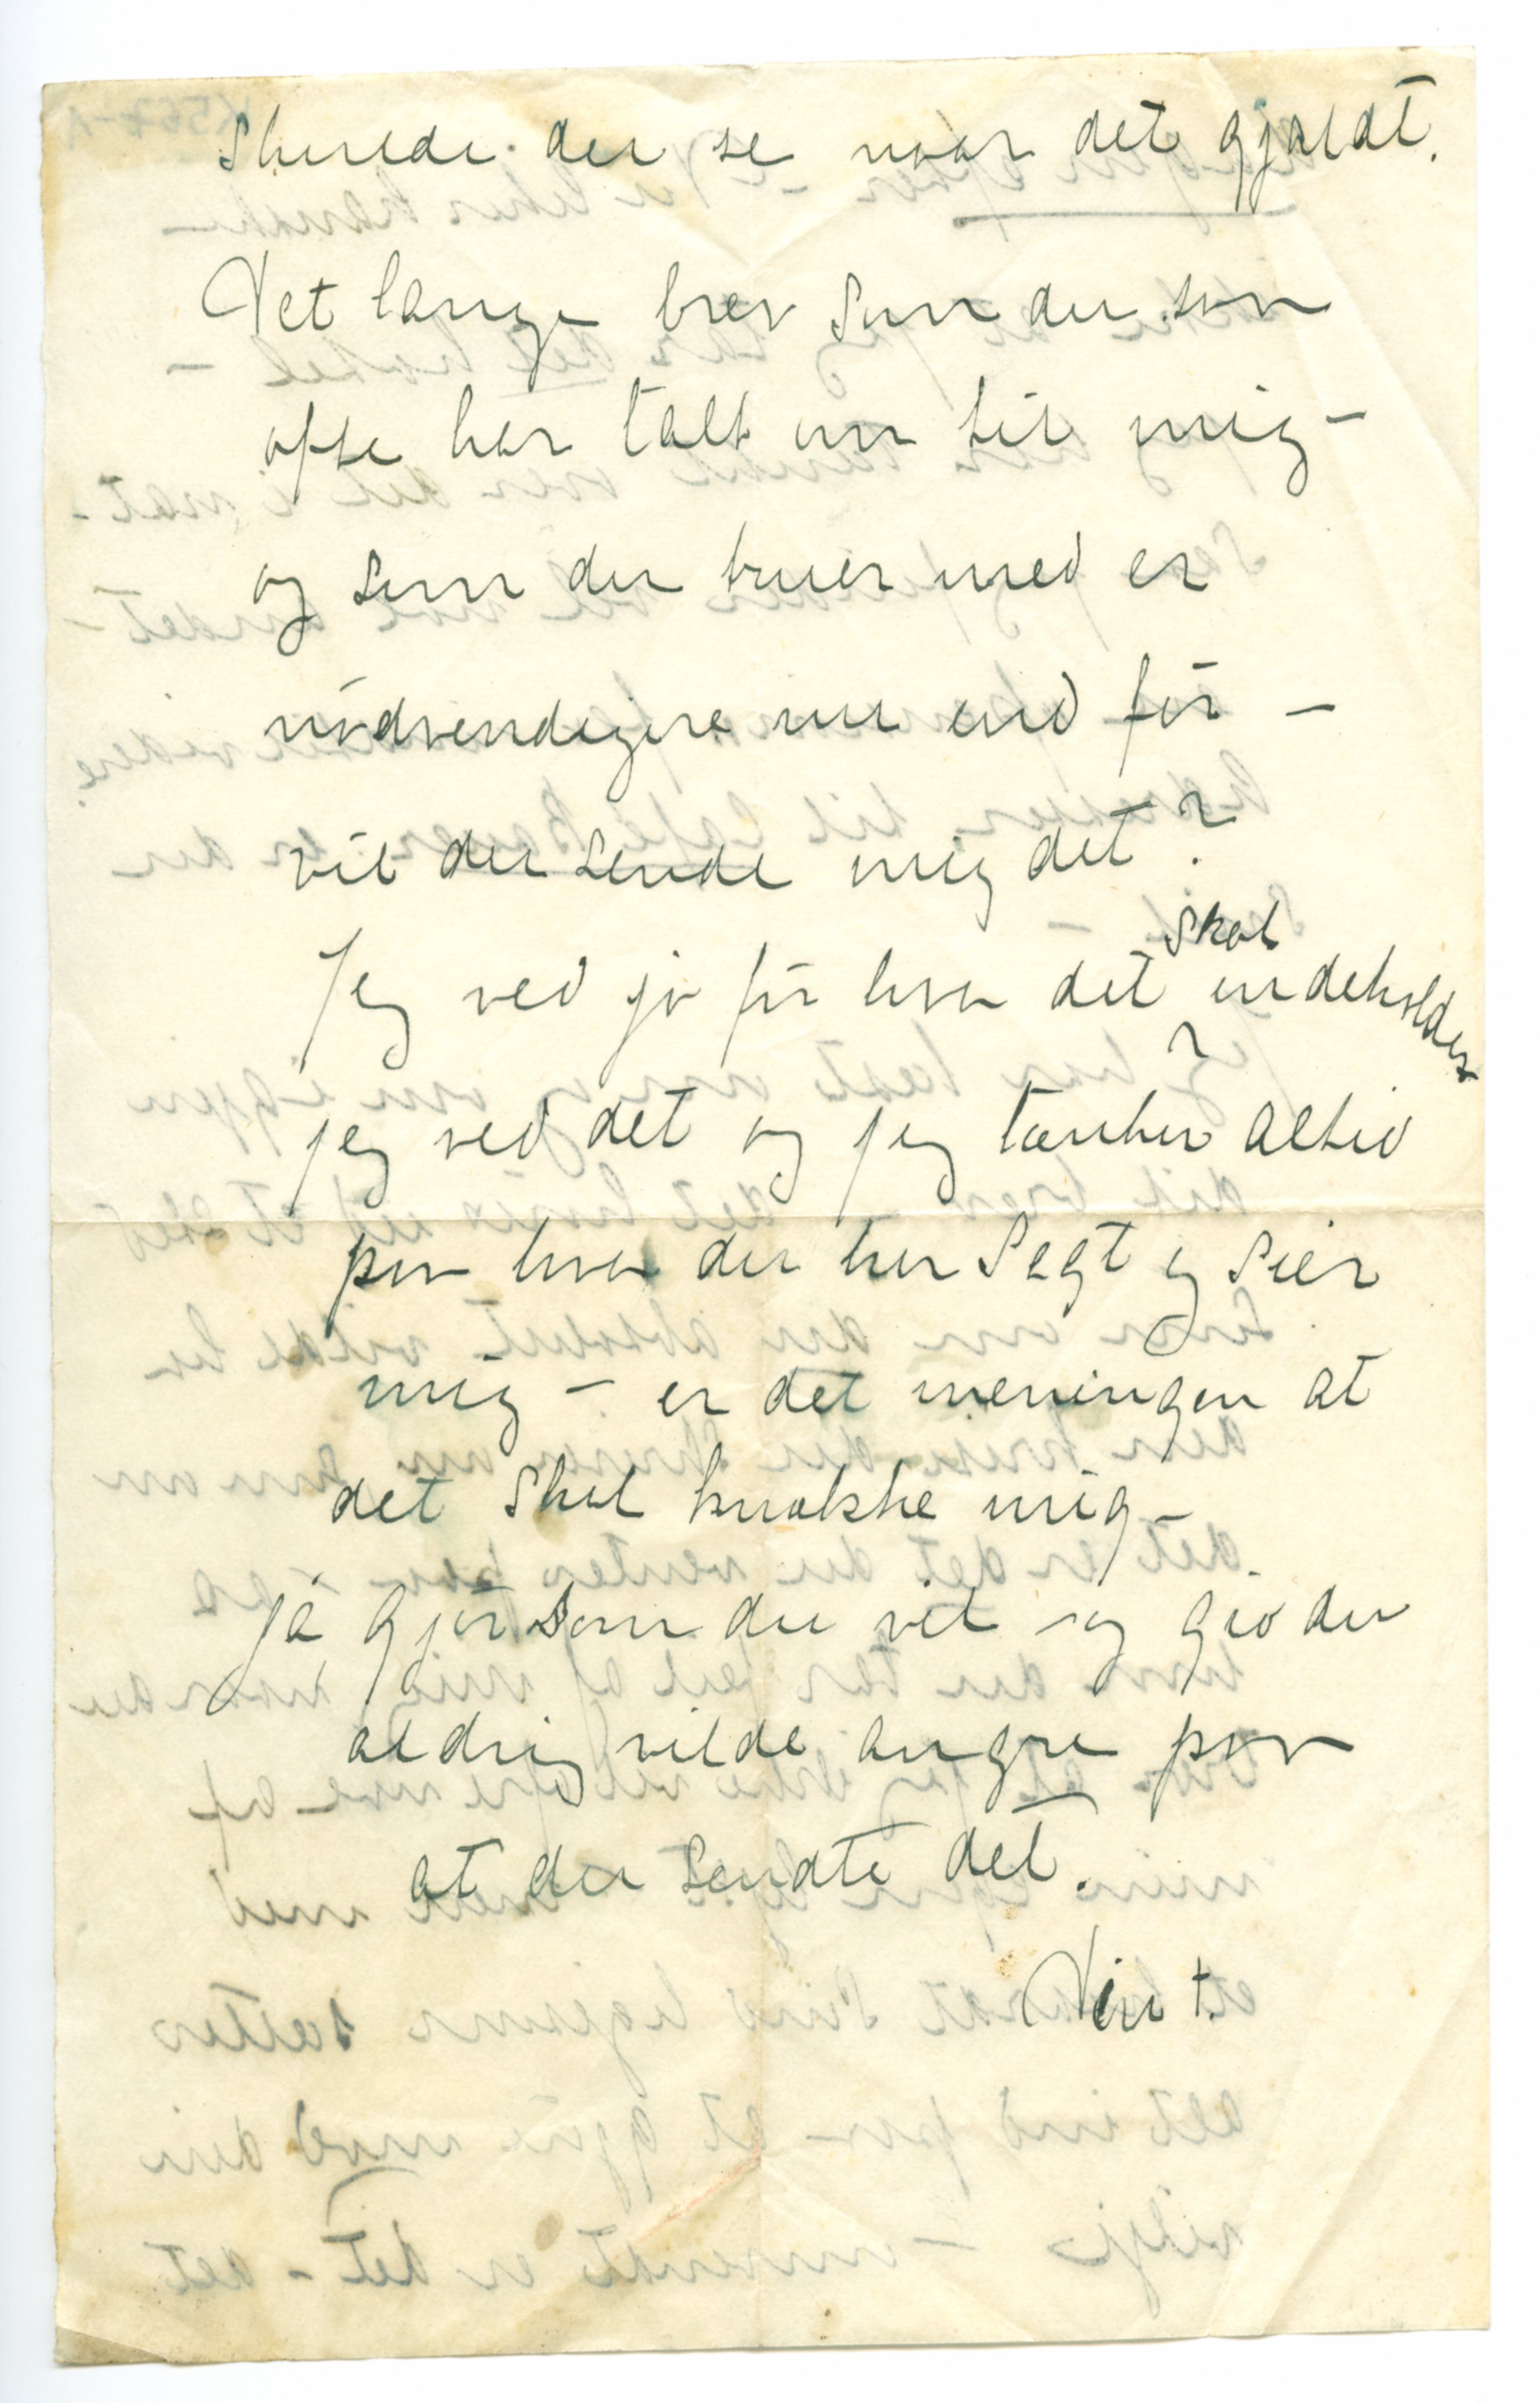 skulde du se naar det gjaldt.
Det lange brev som du saa
ofte har talt om til mig –
og som du truer med er
nødvendigere nu end før –
vil du sende mig det?
Jeg ved jo før hva det skal indeholder
jeg ved det og jeg tænker altid
paa hva du har sagt og sier
mig – er det meningen at
det skal knække mig –
Ja gjør som du vil – og gid du
aldrig vilde angre paa
at du sendte det.
Din t.